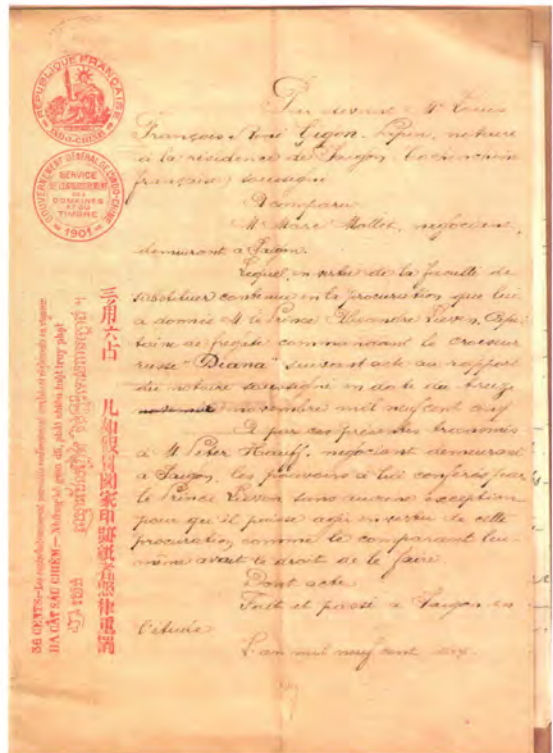 RÉPUBLIQUE FRANÇAISE
INDO-CHINE
GOUVERNEMENT GÉNÉRAL DE L'INDO-CHINE
SERVICE
DE L'ENREGISTREMENT
DES
DOMAINES
ET DU
TIMBRE
1901
36 CENTS
BA CẮT SÁU CHIÊM
三角六占
凡如假冒國家印跡紙者照律重罰
Par devant Mᵉ Louis
François René Gigon-Papin, notaire
à la résidence de Saïgon (Cochinchine
française) soussigné
A comparu
M. Marc Mallet, négociant,
demeurant à Saïgon.
Lequel, en vertu de la faculté de
substituer contenue en la procuration que lui
a donnée M. le Prince Alexandre Lieven, Capi-
taine de frégate commandant le croiseur
russe "Diana" suivant acte au rapport
du notaire soussigné en date du treize
novembre mil neuf cent cinq
A par ces présentes transmis
à M. Peter Hauff, négociant demeurant
à Saïgon, les pouvoirs à lui conférés par
le Prince Lieven sans aucune exception
pour que il puisse agir en vertu de cette
procuration comme le comparant lui-
même avait le droit de le faire.
Dont acte
Fait et passé à Saïgon en
l'étude
L'an mil neuf cent six